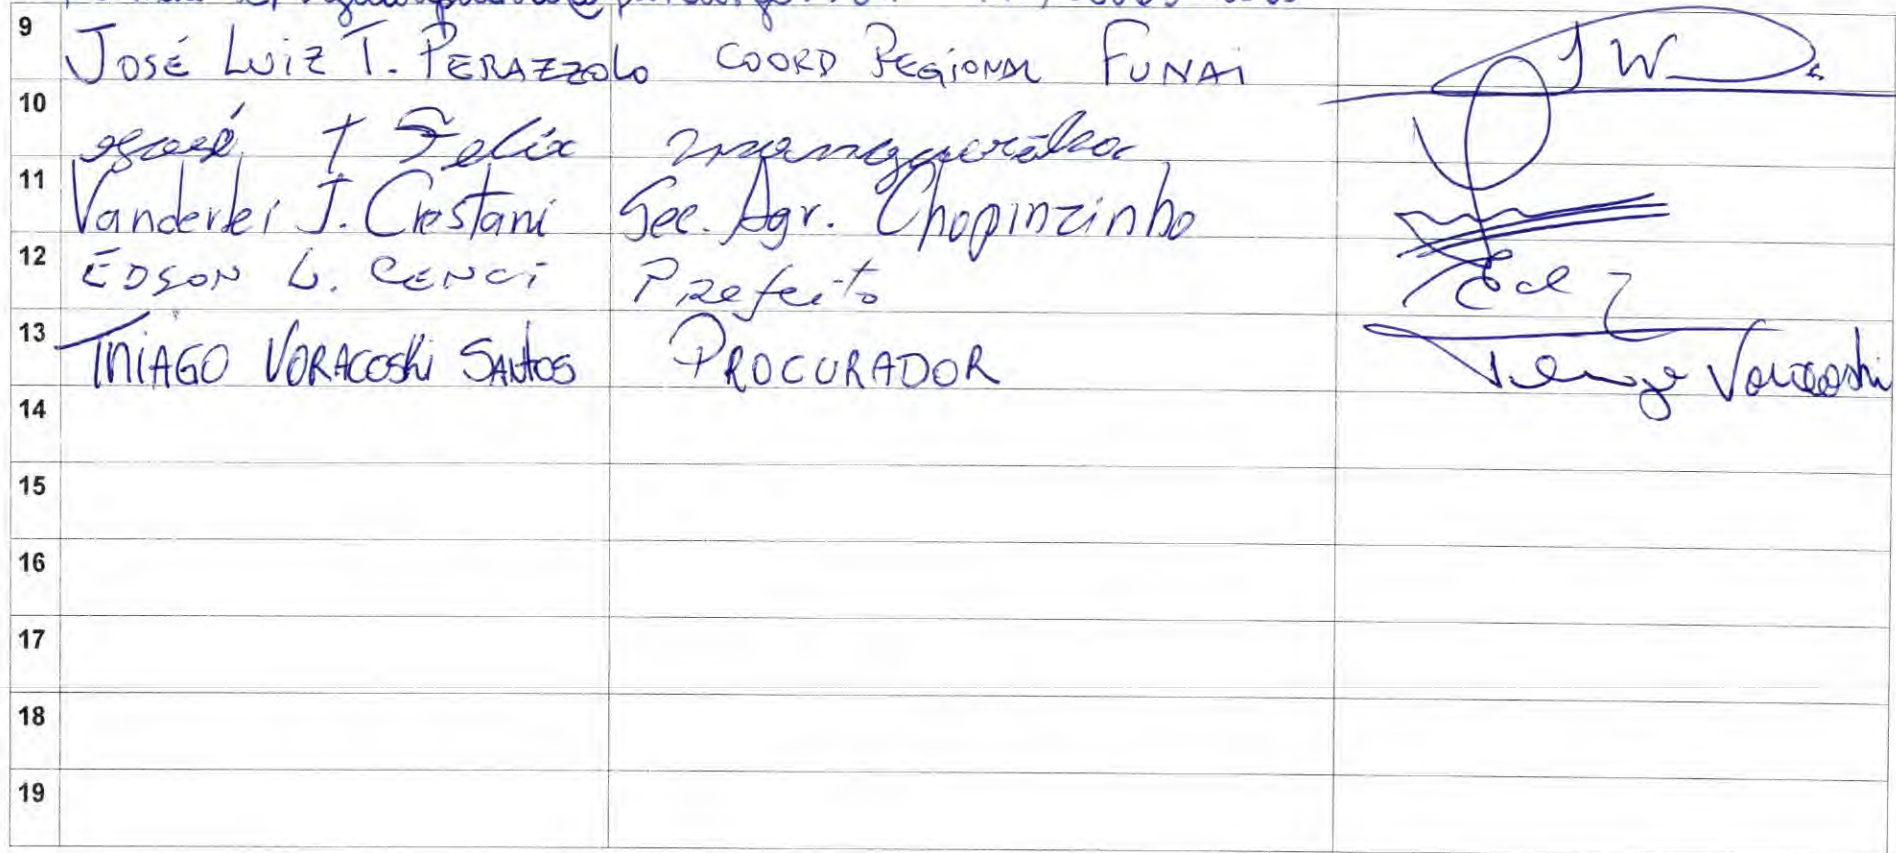 9 José Luiz T. Perazzolo COORD Regional FUNAI
10 José T Felix mangueirinha
11 Vanderlei J. Crestani Sec. Agr. Chopinzinho
12 EDSON L. CENCI Prefeito
13 THIAGO VORACOSKI SANTOS PROCURADOR
14
15
16
17
18
19